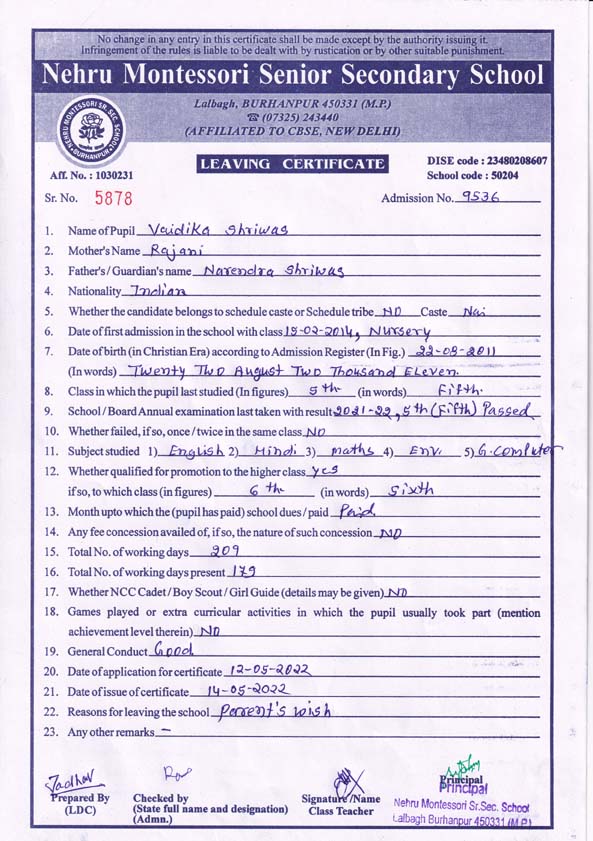 No change in any entry in this certificate shall be made except by the authority issuing it.
Infringement of the rules is liable to be dealt with by rustication or by other suitable punishment.
Nehru Montessori Senior Secondary School
Lalbagh, BURHANPUR 450331 (M.P.)
☎ (07325) 243440
(AFFILIATED TO CBSE, NEW DELHI)
NEHRU MONTESSORI SR. SEC. SCHOOL
BURHANPUR
LEAVING CERTIFICATE
DISE code : 23480208607
Aff. No. : 1030231 School code : 50204
Sr. No. 5878 Admission No. 9536
1. Name of Pupil Vaidika Shriwas
2. Mother's Name Rajani
3. Father's / Guardian's name Narendra Shriwas
4. Nationality Indian
5. Whether the candidate belongs to schedule caste or Schedule tribe NO Caste Nai
6. Date of first admission in the school with class 15-02-2014, Nursery
7. Date of birth (in Christian Era) according to Admission Register (In Fig.) 22-08-2011
(In words) Twenty Two August Two Thousand Eleven.
8. Class in which the pupil last studied (In figures) 5th (in words) Fifth.
9. School / Board Annual examination last taken with result 2021-22, 5th (Fifth) Passed
10. Whether failed, if so, once / twice in the same class NO
11. Subject studied 1) English 2) Hindi 3) maths 4) Env. 5) G. Computer
12. Whether qualified for promotion to the higher class yes
if so, to which class (in figures) 6th (in words) Sixth
13. Month upto which the (pupil has paid) school dues / paid Paid
14. Any fee concession availed of, if so, the nature of such concession NO
15. Total No. of working days 209
16. Total No. of working days present 179
17. Whether NCC Cadet / Boy Scout / Girl Guide (details may be given) NO
18. Games played or extra curricular activities in which the pupil usually took part (mention
achievement level therein) NO
19. General Conduct Good
20. Date of application for certificate 12-05-2022
21. Date of issue of certificate 14-05-2022
22. Reasons for leaving the school Perrent's wish
23. Any other remarks —
Jadhav
Prepared By
(LDC)
Checked by
(State full name and designation)
(Admn.)
Signature /Name
Class Teacher
Principal
Principal
Nehru Montessori Sr.Sec. School
Lalbagh Burhanpur 450331 (M.P)